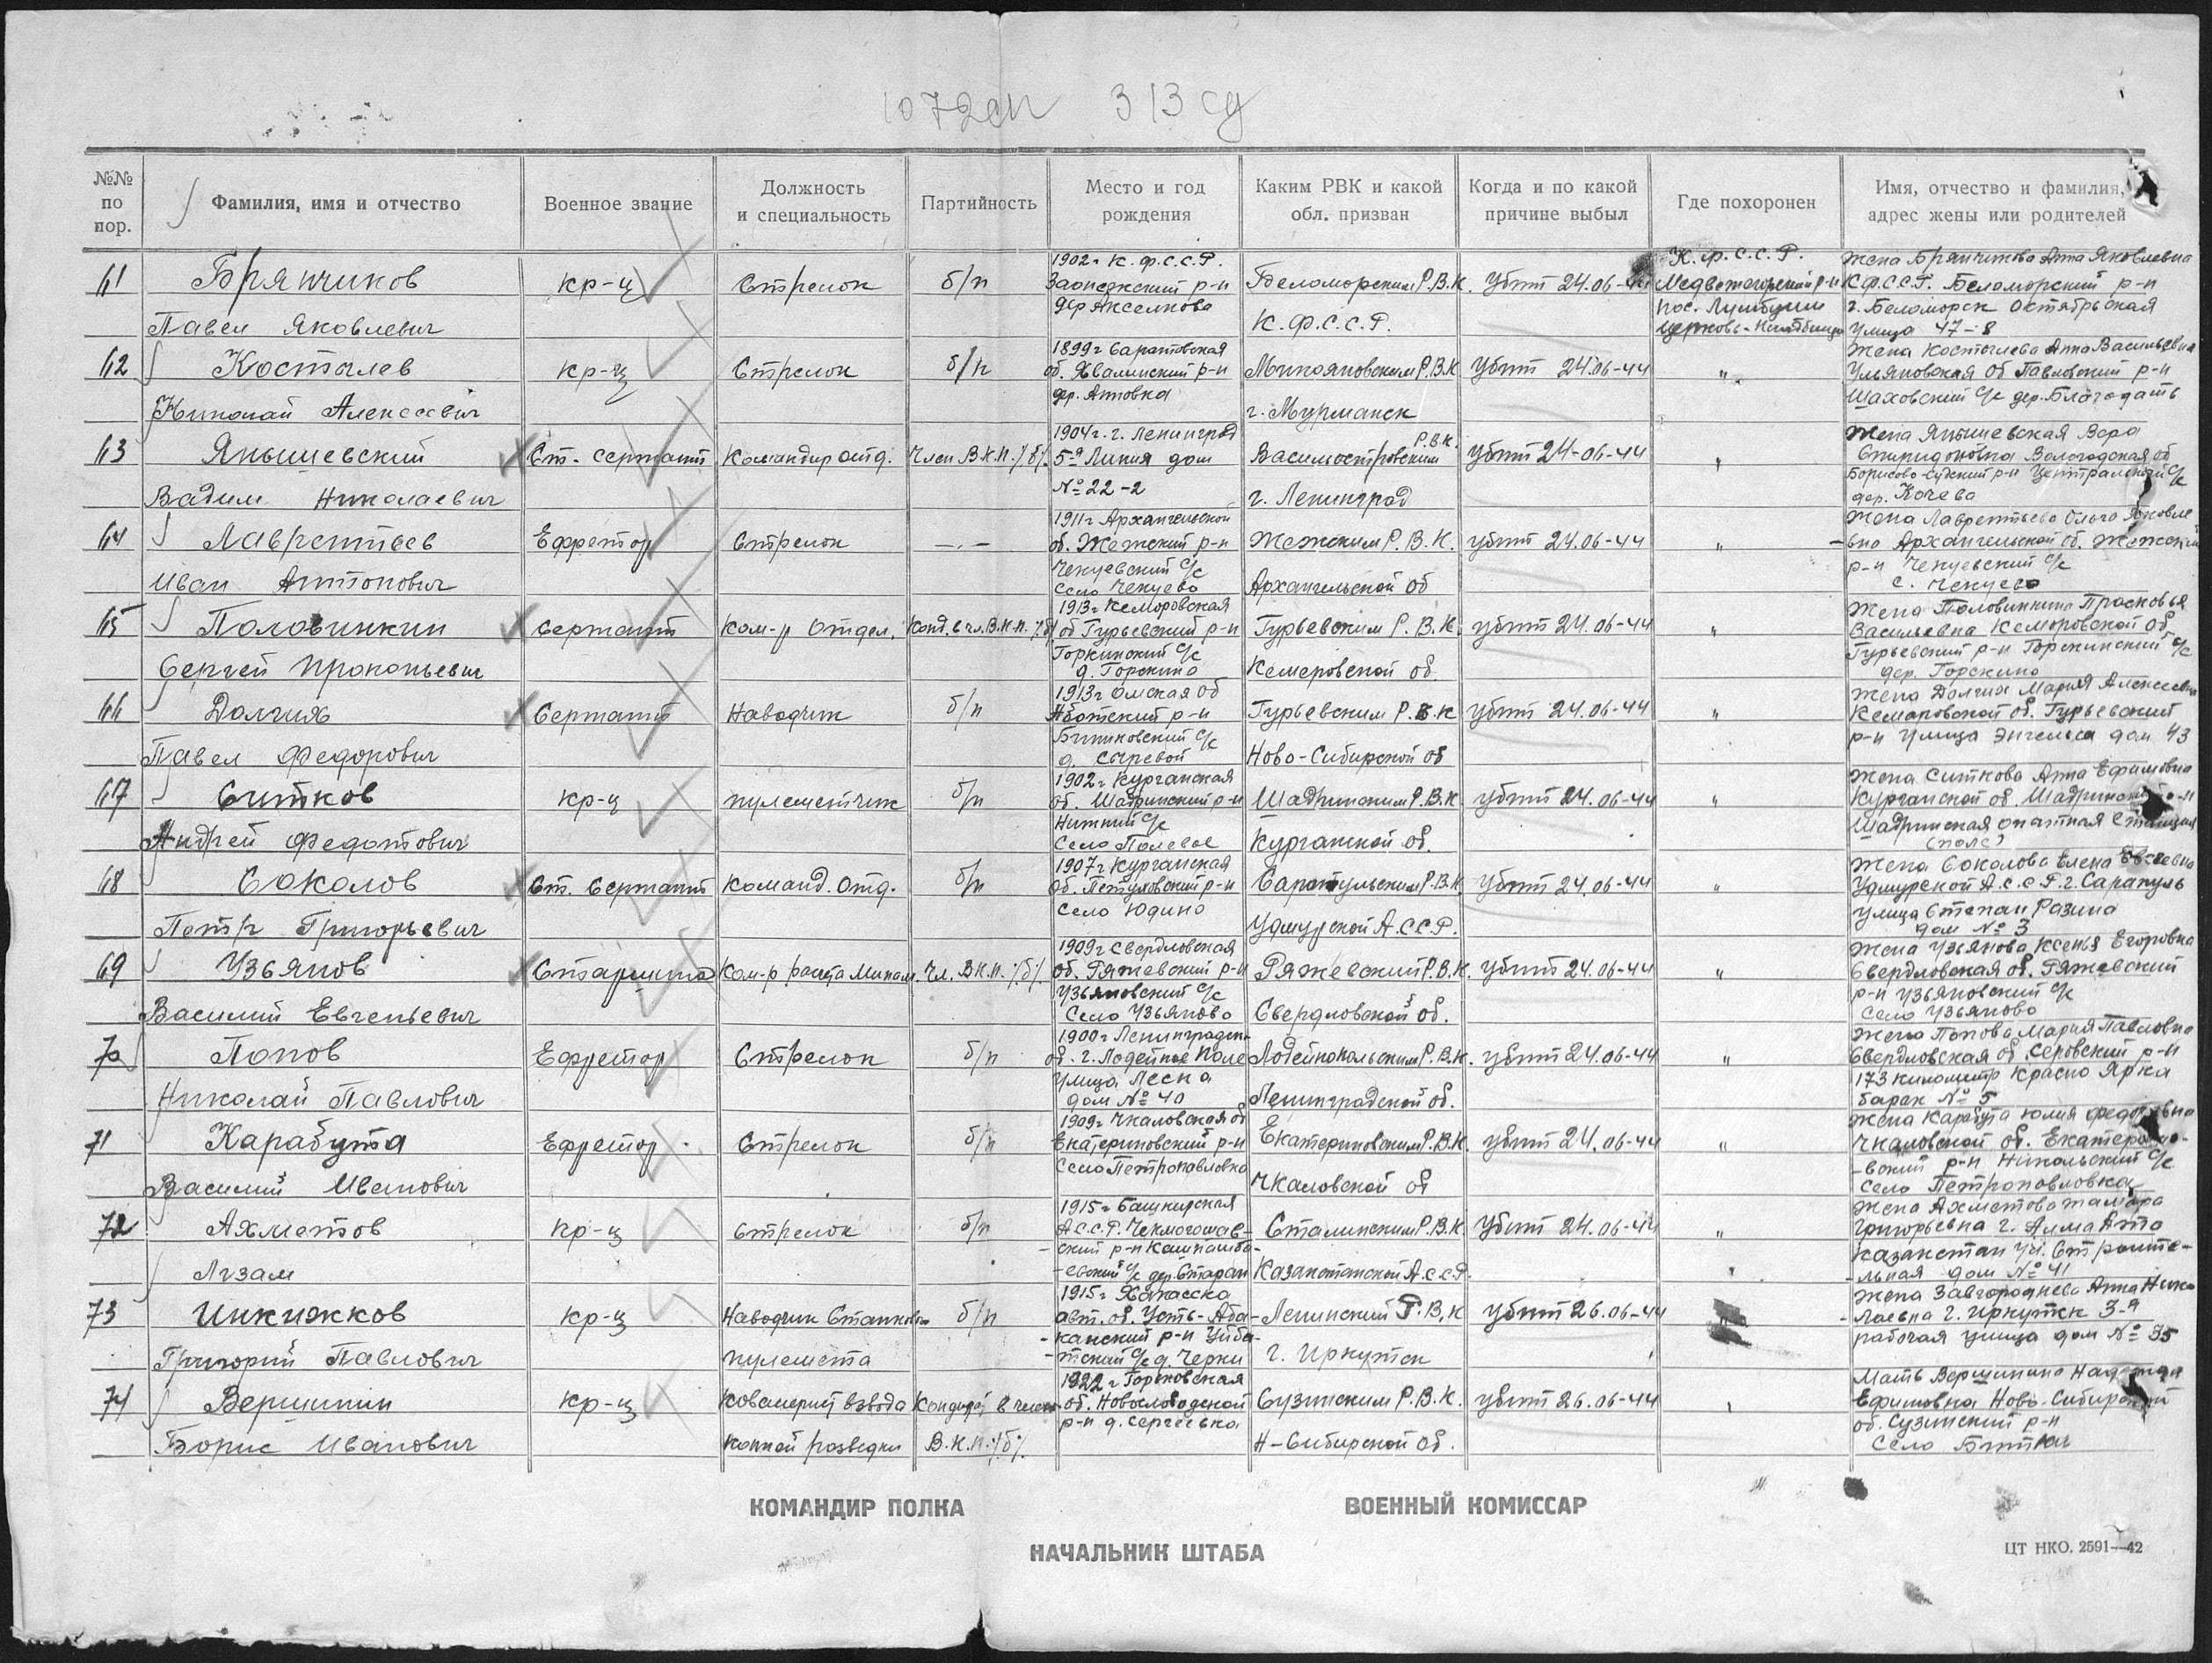 1072 сп 313 сд
№№ по пор.
Фамилия, имя и отчество
Военное звание
Должность и специальность
Партийность
Место и год рождения
Каким РВК и какой обл. призван
Когда и по какой причине выбыл
Где похоронен
Имя, отчество и фамилия, адрес жены или родителей
61
Брянчиков
Павел Яковлевич
кр-ц
Стрелок
б/п
1902 г. К.ф.С.С.Р.
Заонежский р-н
дер Акселково
Беломорским Р.В.К.
К.Ф.С.С.Р.
Убит 24.06-44
К.ф.С.С.Р.
Медвежегорский р-н
пос. Лумбуши
Жена Брянчикова Анна Яковлевна
К.ф.С.С.Р. Беломорский р-н
г. Беломорск Октябрьская
улица 47-8
62
Костылев
Николай Алексеевич
кр-ц
Стрелок
б/п
1899 г Саратовская
об. Хвалинский р-н
дер. Атовка
Микояновским Р.В.К
г. Мурманск
Убит 24.06-44
"
Жена Костылева Анна Васильевна
Ульяновская об Павловский р-н
Шаховский с/с дер. Благодать
63
Янышевский
Вадим Николаевич
Ст. сержант
Командир отд.
Член В.К.П./б/.
1904 г. г. Ленинград
5-я Линия дом
№ 22-2
Васильостровским Р.В.К.
г. Ленинград
убит 24-06-44
"
Жена Янышевская Вера
Спиридоновна Вологодская об
Борисово-Судский р-н Центральский с/с
дер. Кочево
64
Лаврентьев
Иван Антонович
Ефрейтор
Стрелок
—.—
1911 г Архангельской
об. Жежский р-н
Чекуевский с/с
село Чекуево
Жежским Р.В.К.
Архангельской об
убит 24.06-44
"
Жена Лаврентьева Ольга Яковле-
вна Архангельской об. Жежский
р-н Чекуевский с/с
с. Чекуево
65
Половинкин
Сергей Прокопьевич
Сержант
Ком-р отдел.
Канд. в чл. В.К.П./б/
1913 г Кемеровская
об Гурьевский р-н
Горкинский с/с
д. Горскино
Гурьевским Р.В.К.
Кемеровской об.
убит 24.06-44
"
Жена Половинкина Прасковья
Васильевна Кемеровской об
Гурьевский р-н Горскинский с/с
дер. Горскино
66
Долгих
Павел Федорович
Сержант
Наводчик
б/п
1913 г Омская об
Аботский р-н
д. Сыревой
Гурьевским Р.В.К
Ново-Сибирской об
убит 24.06-44
"
Жена Долгих Мария Алексеевна
Кемеровской об. Гурьевский
р-н улица Энгельса дом 43
67
Ситков
Андрей Федотович
кр-ц
пулеметчик
б/п
1902 г Курганская
об. Шадринский р-н
Нижний с/с
Село Полевое
Шадринским Р.В.К.
Курганской об.
убит 24.06-44
"
Жена Ситкова Анна Ефимовна
Курганской об. Шадринский р-н
Шадринская опытная станция
(поле)
68
Соколов
Петр Григорьевич
Ст. Сержант
Команд. отд.
б/п
1907 г Курганская
об. Петуховский р-н
село Юдино
Сарапульским Р.В.К.
Удмурской А.С.С.Р.
убит 24.06-44
"
Жена Соколова Елена Евсеевна
Удмурской А.С.С.Р. г. Сарапуль
улица Степан Разина
дом № 3
69
Узьянов
Василий Евгеньевич
Старшина
Ком-р расчета Мином.
Чл. В.К.П./б/.
1909 г Свердловская
об. Ряжевский р-н
Узьяновский с/с
Село Узьяново
Ряжевский Р.В.К.
Свердловской об.
убит 24.06-44
"
Жена Узьянова Ксенья Егоровна
Свердловская об. Ряжевский
р-н Узьяновский с/с
Село Узьяново
70
Попов
Николай Павлович
Ефрейтор
Стрелок
б/п
1900 г Ленинградск.
об. г. Лодейное Поле
Улица Леска
дом № 40
Лодейнопольским Р.В.К.
Ленинградской об.
убит 24.06-44
"
Жена Попова Мария Павловна
Свердловская об. Серовский р-н
173 километр Красно Ярка
барак № 5
71
Карабута
Василий Иванович
Ефрейтор
Стрелок
б/п
1909 г Чкаловская об
Екатериновский р-н
Село Петропавловка
Екатериновским Р.В.К.
Чкаловской об
убит 24.06-44
"
Жена Карабута Юлия Федоровна
Чкаловской об. Екатерино-
-вский р-н Никольский с/с
Село Петропавловка
72
Ахметов
Агзам
кр-ц
Стрелок
б/п
1915 г Башкирская
А.С.С.Р. Чекмогошав-
-евский с/с дер. Старан
Сталинским Р.В.К.
Казахстанской А.С.С.Р.
убит 24.06-44
"
Жена Ахметова Тамара
Григорьевна г. Алма Ата
Казакстан ул. Строите-
-льная дом № 41
73
Инкижков
Григорий Павлович
кр-ц
Наводчик Станков.
пулемета
б/п
1915 г Хакасска
авт. об. Усть-Аба-
-канский р-н Уйба-
-тский с/с д. Черки
Ленинский Р.В.К
г. Иркутск
убит 26.06-44
Жена Завгороднева Анна Нико-
-лаевна г. Иркутск 3-я
рабочая улица дом № 35
74
Вершинин
Борис Иванович
кр-ц
Ковалерист взвода
конной разведки
Кандидат в члены
В.К.П./б/.
1922 г Горьковская
об. Новослободской
р-н д. Сергеевка
Сузинским Р.В.К.
Н-Сибирской об.
убит 26.06-44
"
Мать Вершинина Надежда
Ефимовна Ново-Сибирской
об. Сузинский р-н
Село Битки
КОМАНДИР ПОЛКА
ВОЕННЫЙ КОМИССАР
НАЧАЛЬНИК ШТАБА
ЦТ НКО. 2591—42